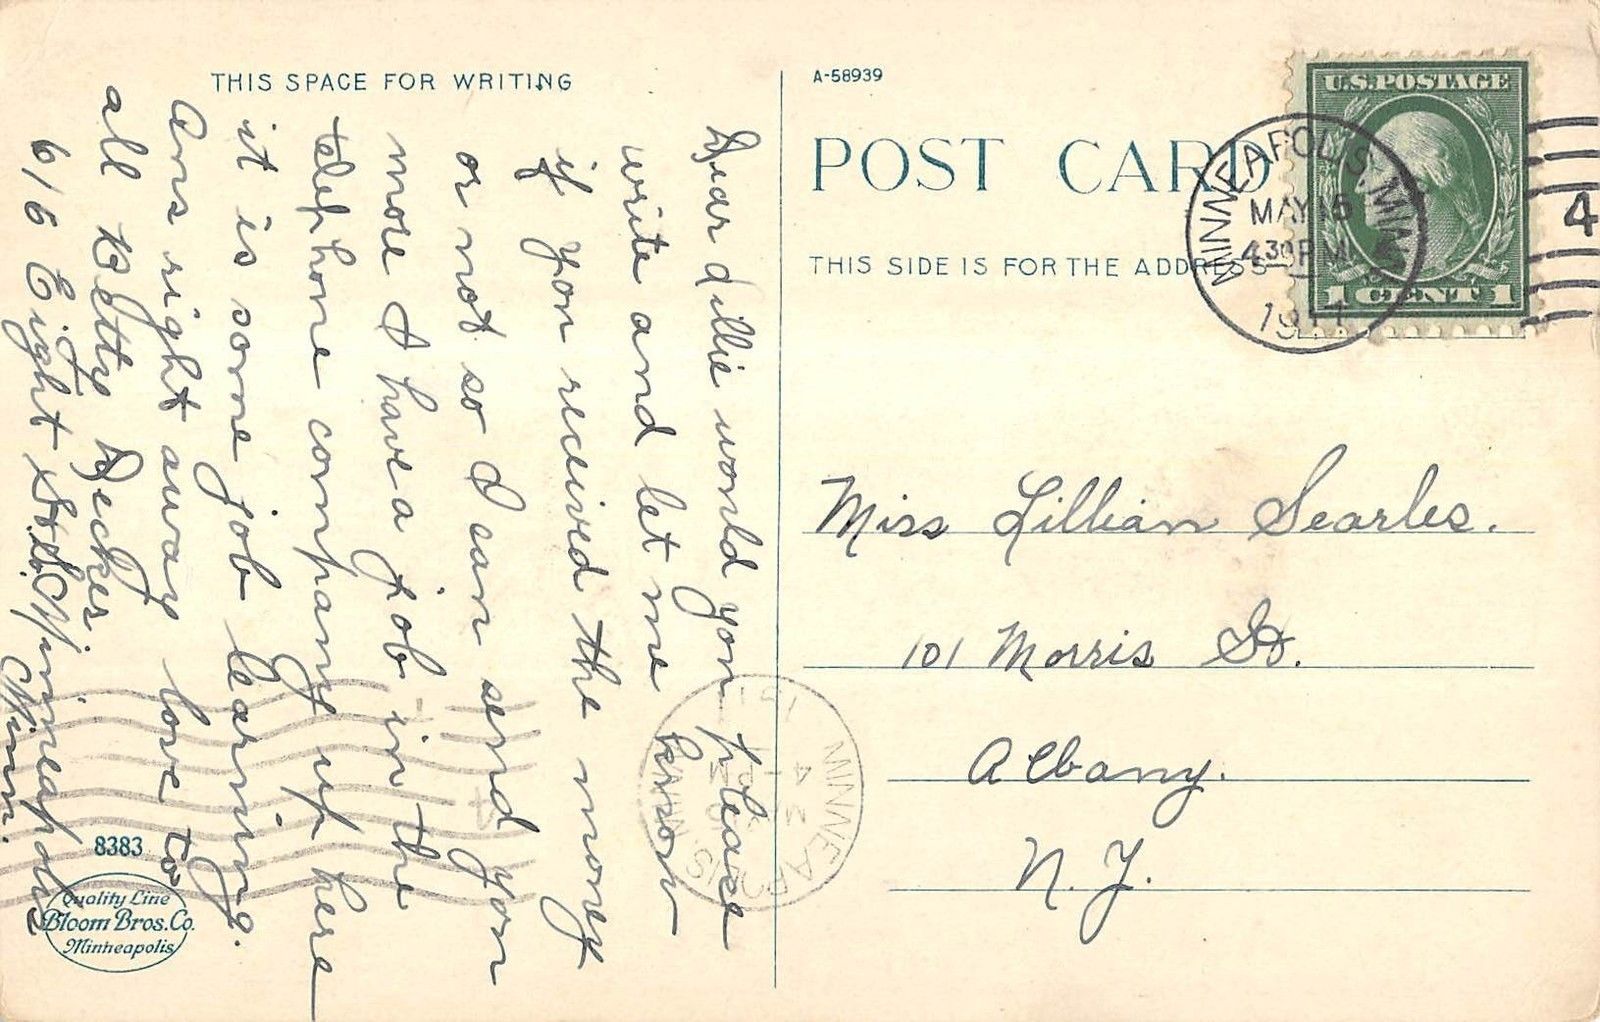 THIS SPACE FOR WRITING
Dear Lillie would you please
write and let me know
if you received the money
or not so I can send you
more I have a job in the
telephone company up here
it is some job learning.
Ans right away love to
all Betty Decker
616 Eight St. S.E. Minneapolis
Minn.
8383
Quality Line
Bloom Bros. Co.
Minneapolis
A-58939
POST CARD
THIS SIDE IS FOR THE ADDRESS
U.S. POSTAGE
1 CENT 1
MINNEAPOLIS, MINN.
MAY 15
4 30 PM
4
Miss Lillian Searles.
101 Morris St.
Albany.
N. Y.
MINNEAPOLIS
MINN.